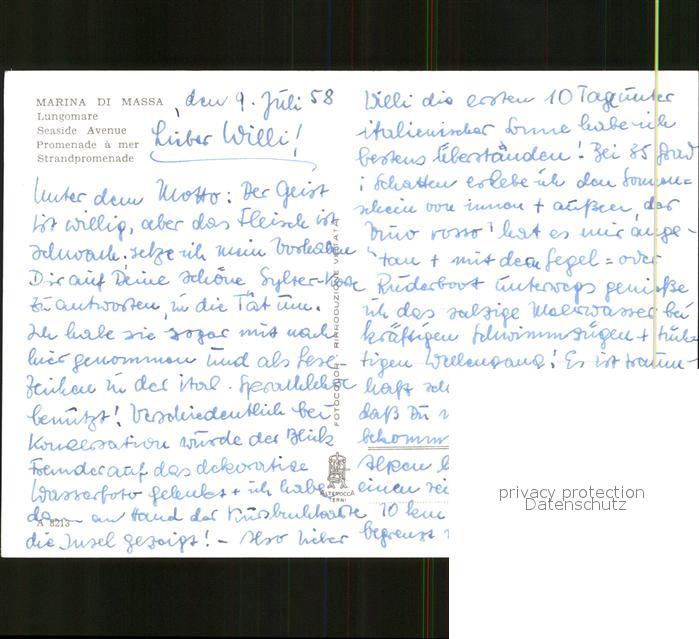 MARINA DI MASSA
Lungomare
Seaside Avenue
Promenade à mer
Strandpromenade
den 9. Juli 58
Lieber Willi!
Unter dem Motto: Der Geist
ist willig, aber das Fleisch ist
schwach, setze ich mein Vorhaben
Dir auf Deine schöne Sylter-Karte
zu antworten, in die Tat um.
Ich habe sie sogar mit nach
hier genommen und als Lese-
zeichen in der ital. Sprachlehre
benützt! Verschiedentlich bei
Konversation wurde der Blick
Fremder auf das dekorative
Wasserfoto gelenkt + ich habe
dann an Hand der Kursbuchkarte
die Insel gezeigt! - Also lieber
A 8213
FOTOCOLOR - RIPRODUZIONE VIETATA
ALTEROCCA
TERNI
Willi die ersten 10 Tage unter
italienischer Sonne habe ich
bestens überstanden! Bei 35 Grad
i Schatten erlebe ich den Sonnen=
schein von innen + außen, der
"vino rosso" hat es mir ange-
tan + mit dem Segel= oder
Ruderboot unterwegs genieße
ich das salzige Meerwasser bei
kräftigen Schwimmzügen +
tigen Wellengang! Es ist traum-
haft
daß Du
bekomm
Alpen
einen
10 km
begrenzt
privacy protection
Datenschutz